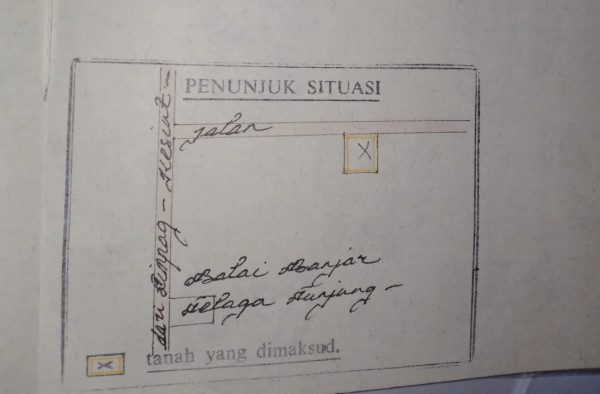 PENUNJUK SITUASI
jalan
X
dari Simpag - Kesiut -
Balai Banjar
Telaga Tunjung -
X tanah yang dimaksud.